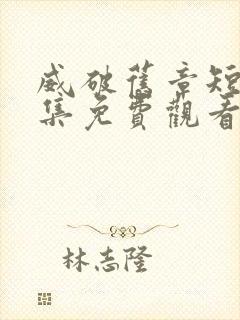 威破舊章短
集免費觀看
林志隆